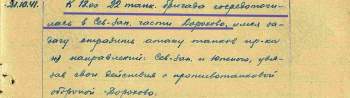 31.10.41. К 12.00 22 танк. бригада сосредоточи-
лась в Сев-зап. части Дорохово, имея за-
дачу отразить атаку танков пр-ка
с направлений: Сев-зап. и Южного, увя-
зав свои действия с противотанковой
обороной Дорохово.